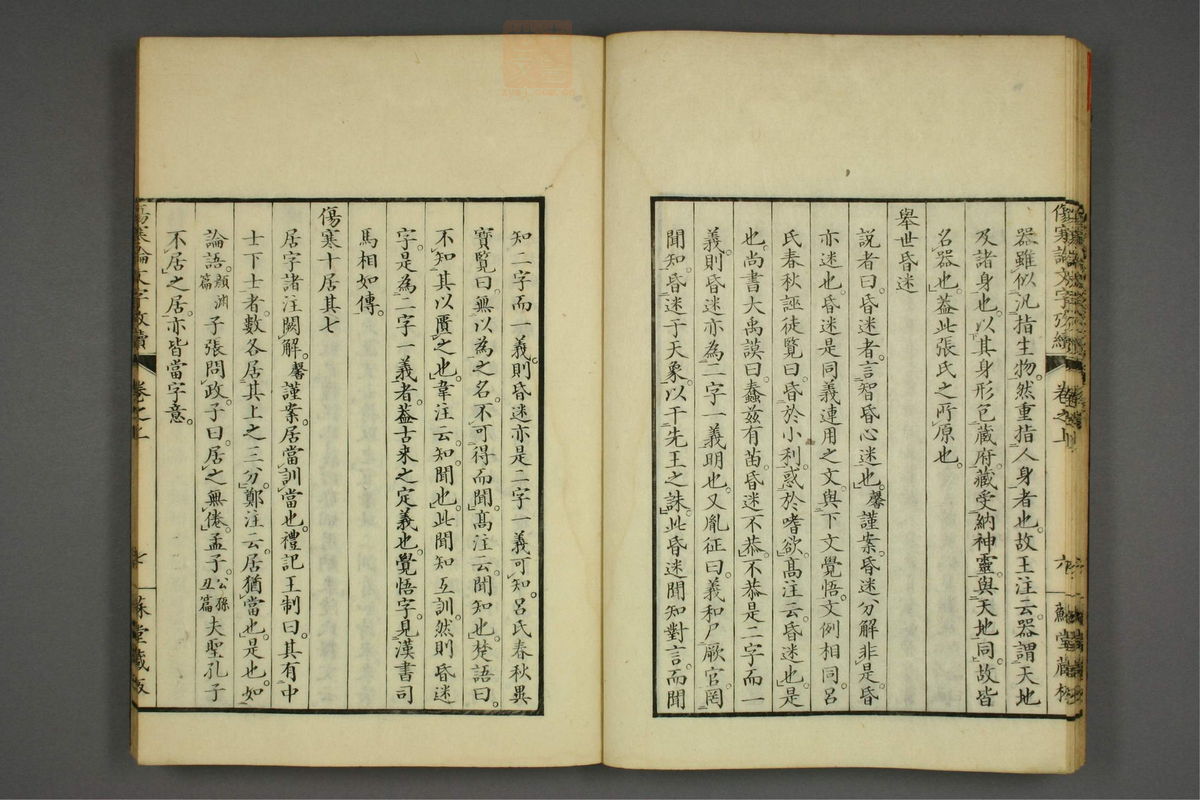 器雖似汎指生物。然重指人身者也。故王注云。器謂天地
及諸身也。以其身形包藏府。藏受納神靈。與天地同。故皆
名器也。蓋此張氏之所原也。
舉世昏迷
說者曰。昏迷者。言智昏心迷也。馨謹案。昏迷分解非是。昏
亦迷也。昏迷是同義連用之文。與下文覺悟。文例相同。呂
氏春秋誣徒覽曰。昏於小利。惑於嗜欲。高注云。昏迷也。是
也。尚書大禹謨曰。蠢茲有苗。昏迷不恭。不恭是二字而一
義。則昏迷亦為二字一義明也。又胤征曰。義和尸厥官。罔
聞知。昏迷于天象。以干先王之誅。此昏迷聞知對言。而聞
傷寒論文字攷續 卷之上 六 蘇堂藏板
知二字而一義。則昏迷亦是二字一義可知。呂氏春秋異
寶覽曰。無以為之名。不可得而聞。高注云。聞知也。楚語曰。
不知其以匱之也。韋注云。知聞也。此聞知互訓。然則昏迷
字。是為二字一義者。蓋古來之定義也。覺悟字。見漢書司
馬相如傳。
傷寒十居其七
居字諸注闕解。馨謹案。居當訓當也。禮記王制曰。其有中
士下士者。數各居其上之三分。鄭注云。居猶當也。是也。如
論語。顏淵篇子張問政。子曰。居之無倦。孟子。公孫丑篇夫聖孔子
不居之居。亦皆當字意。
傷寒論文字攷續 卷之上 七 蘇堂藏板